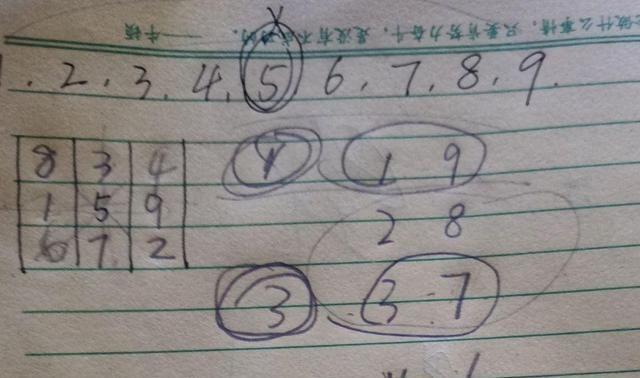 做什么事情,只要肯努力奋斗,是没有不成功的. ——牛顿
. 2 . 3 . 4 . 5 6 . 7 . 8 . 9 .
8 3 4 1 9
1 5 9 2 8
6 7 2
3 3 . 7